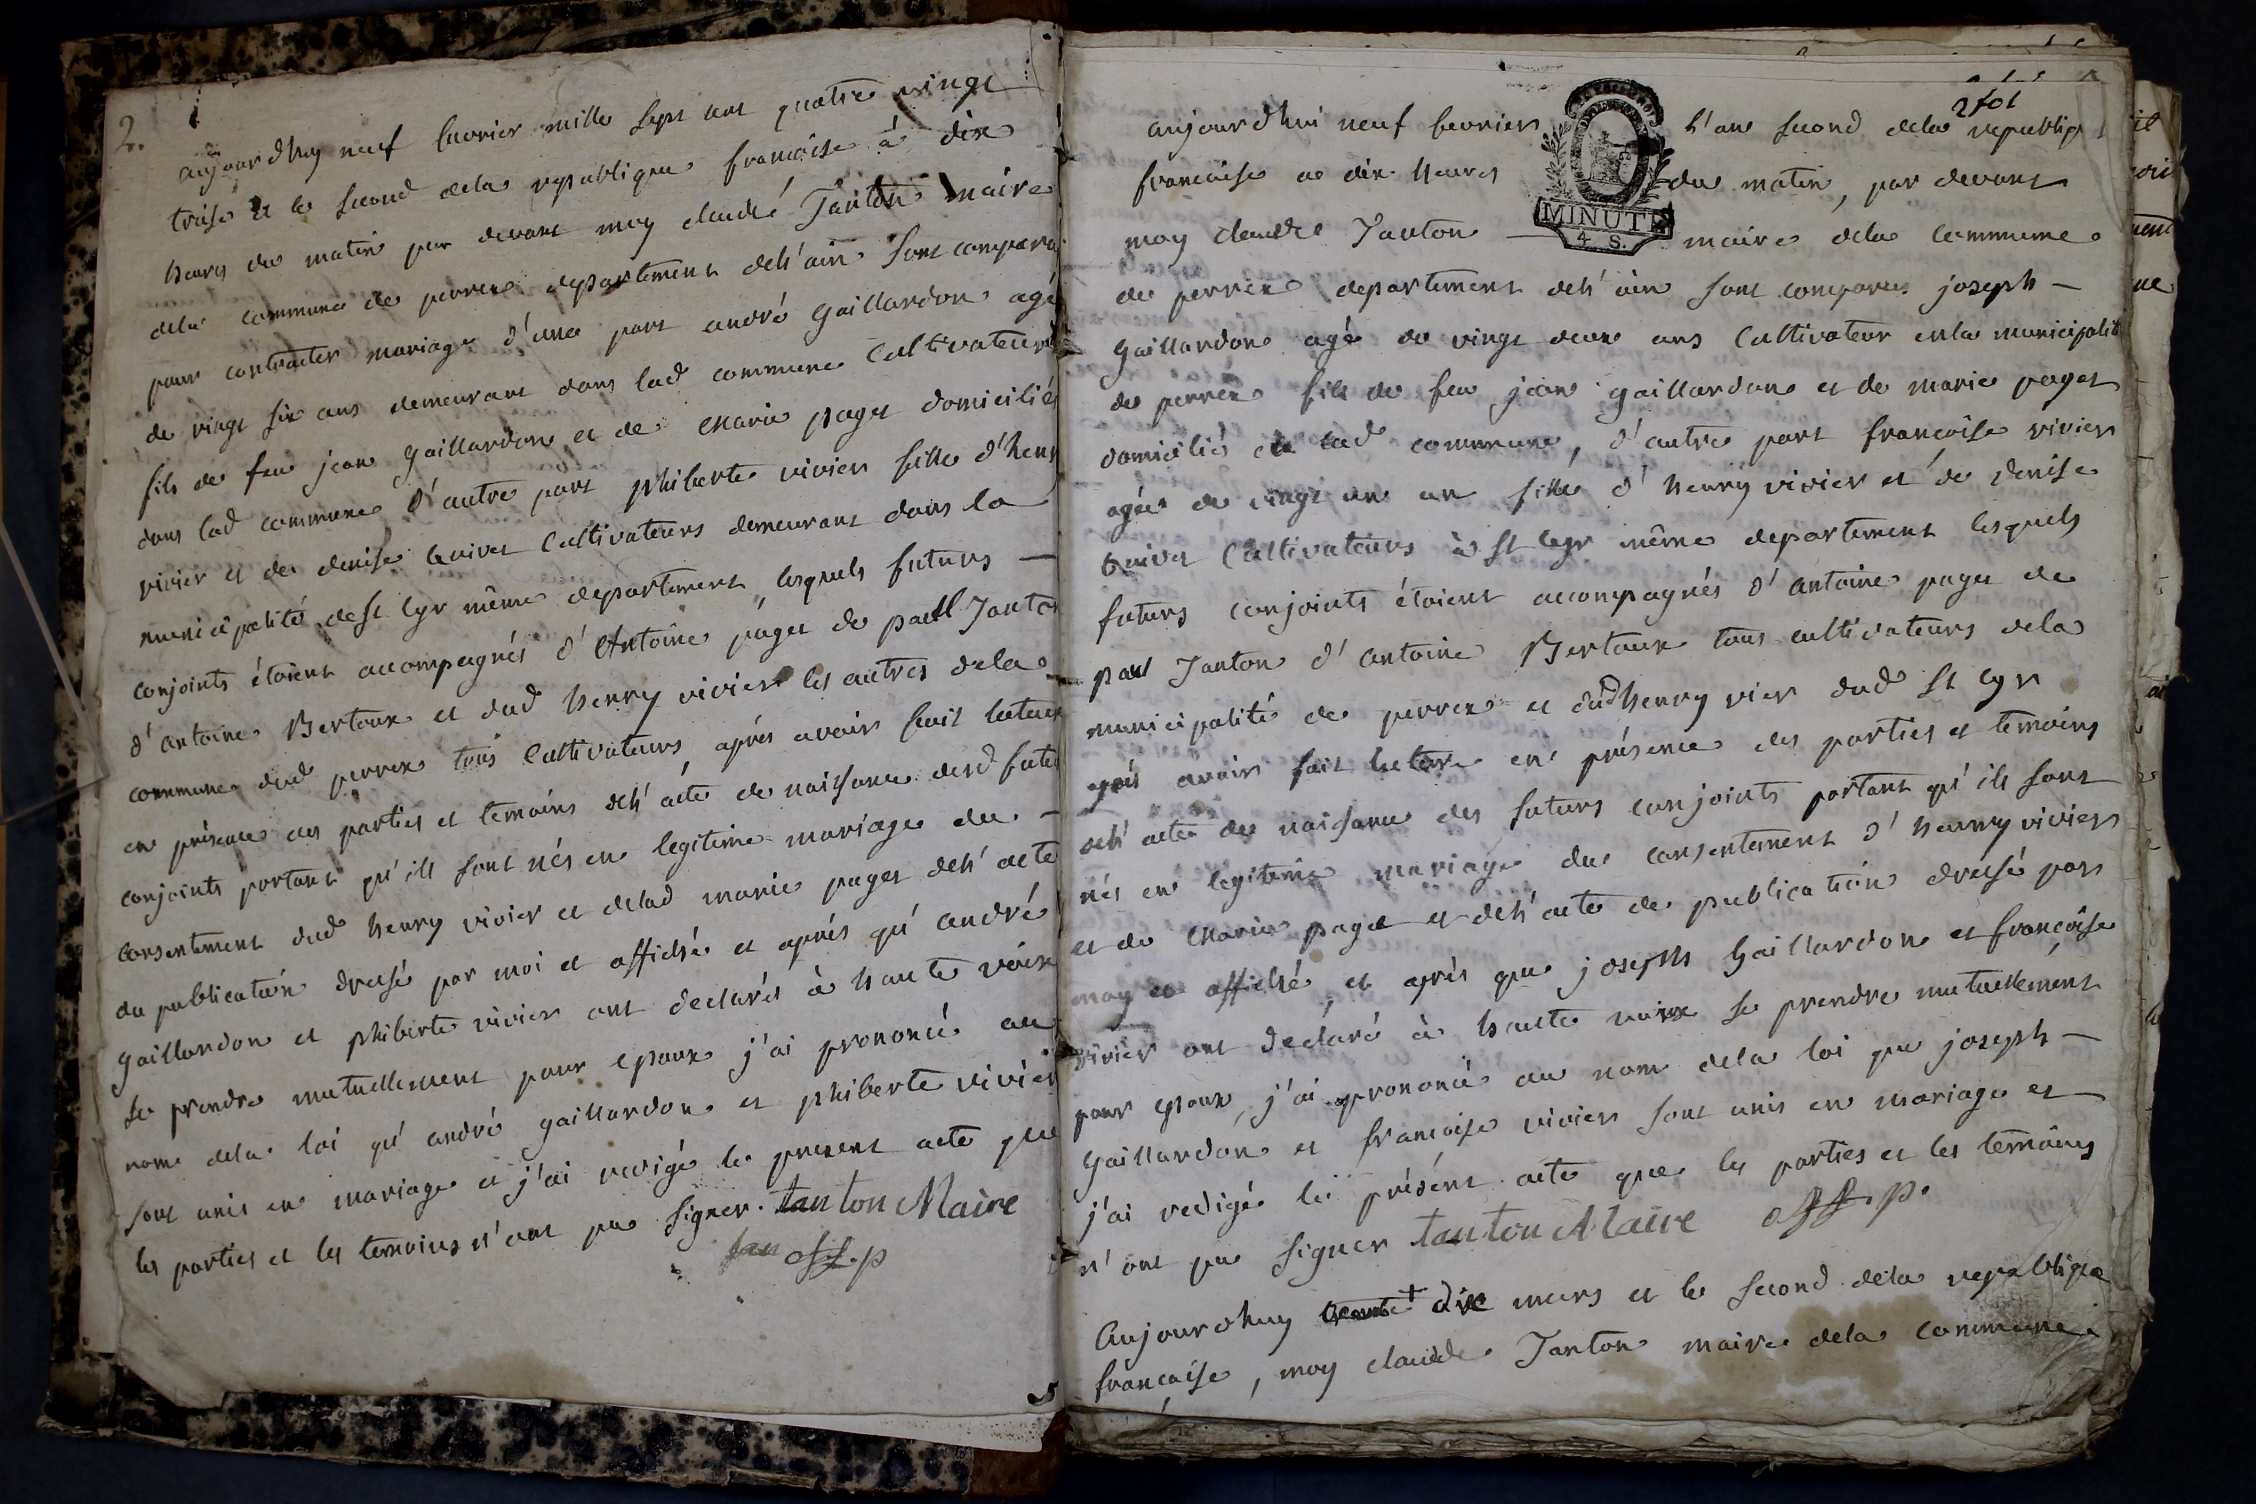 2.
aujourdhuy neuf fevrier mille sept cent quatre vingt
treise et le second dela republique francoise à dix
heures du matin par devant moy claude Tanton maire
dela commune de perrex departement deli'ain sont comparu
pour contracter mariage d'une part andré gaillardon agé
de vingt six ans demeurant dans lad commune Cultivateur
fils de feu jean gaillardon et de Marie paget domiciliés
dans lad commune d'autre part philberte vivier fille d'henry
vivier et de denise Cultivateurs demeurant dans la
municipalité de st Cyr même departement, lesquels futurs —
conjoints étoient accompagnés d'Antoine paget de paul Tanton
d'antoine Bertoux et dud henry vivier les autres dela
commune dud perrex tous Cultivateurs, aprés avoir fait lecture
en présence des parties et temoins deli'acte de naissance desd futurs
conjoints portant qu'ils sont nés en legitime mariage du —
consentement dud henry vivier et delad marie paget deli'acte
du publication dressé par moi et affiché et aprés qu'andré
gaillardon et philberte vivier ont declarés à haute voix
se prendre mutuellement pour epoux j'ai prononcé au
nom dela loi qu'andré gaillardon et philberte vivier
sont unis en mariage et j'ai redigé le present acte que
les parties et les temoins n'ont pu signer. tanton Maire
off. p
2 fol
aujourdhui neuf fevrier l'an second dela republiq
francoise a dix heures du matin, par devant
moy claude Tanton — maire dela commune
MINUTE
4 S.
de perrex departement deli'ain sont comparus joseph —
gaillardon agé de vingt deux ans Cultivateur enla municipalité
de perrex fils de feu jean gaillardon et de marie paget
domiciliés en lad commune, d'autre part francoise vivier
agée de vingt un an fille d'henry vivier et de denise
Cultivateurs à st Cyr même departement lesquels
futurs conjoints étoient accompagnés d'antoine paget de
paul Tanton d'antoine Bertoux tous cultivateurs dela
municipalité de perrex et dud henry vier dud St Cyr
aprés avoir fait lecture en présence des parties et temoins
deli'acte de naissance des futurs conjoints portant qu'ils sont
nés en legitime mariage du consentement d'henry vivier
et de Marie paget et deli'acte de publication dressé par
moy et affiché, et aprés que joseph Gaillardon et francoise
vivier ont declaré à haute voix se prendre mutuellement
pour epoux, j'ai prononcé au nom dela loi que joseph —
gaillardon et francoise vivier sont unis en mariage et
j'ai redigé le présent acte que les parties et les temoins
n'ont pu signer tanton Maire off. p.
Aujourdhuy dix mars et le second dela republique
francaise, moy claude Tanton maire dela commune